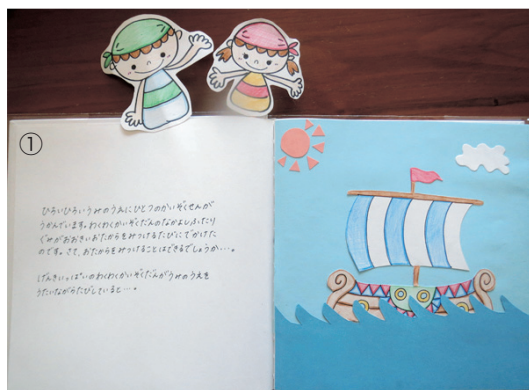 ①
ひろいひろいうみのうえにひとつのかいぞくせんが
うかんでいます。わくわくかいぞくだんのなかよしふたり
ぐみがおおきいおたからをみつけるたびにでかけた
のです。さて、おたからをみつけることはできるでしょうか…。
げんきいっぱいのわくわくかいぞくだんがうみのうえを
うたいながらたびしていると…。